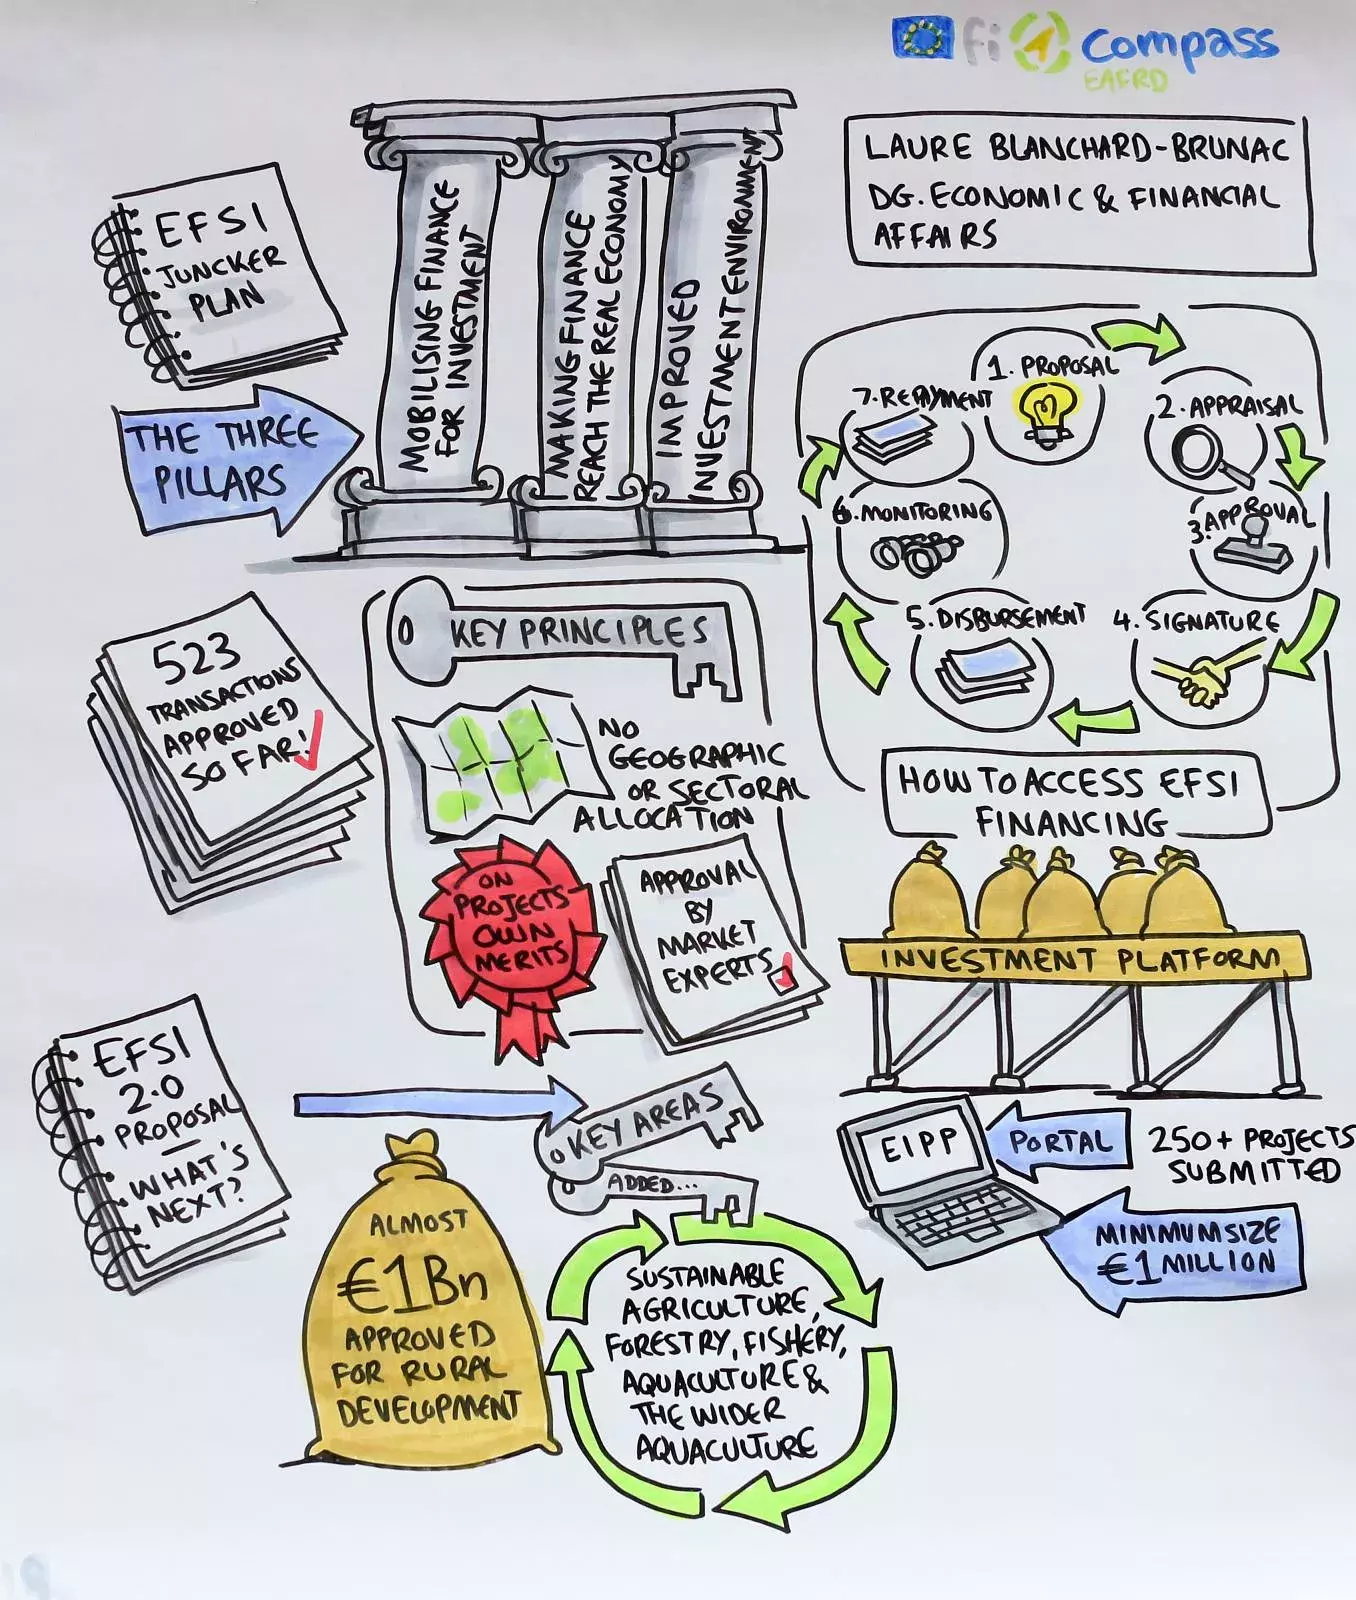 fi compass
EAFRD
LAURE BLANCHARD-BRUNAC
DG. ECONOMIC & FINANCIAL
AFFAIRS
EFSI
JUNCKER
PLAN
THE THREE
PILLARS
MOBILISING FINANCE
FOR INVESTMENT
MAKING FINANCE
REACH THE REAL ECONOMY
IMPROVED
INVESTMENT ENVIRONMENT
1. PROPOSAL
2. APPRAISAL
3. APPROVAL
4. SIGNATURE
5. DISBURSEMENT
6. MONITORING
7. REPAYMENT
HOW TO ACCESS EFSI
FINANCING
523
TRANSACTIONS
APPROVED
SO FAR!
KEY PRINCIPLES
NO
GEOGRAPHIC
OR SECTORAL
ALLOCATION
ON
PROJECTS
OWN
MERITS
APPROVAL
BY
MARKET
EXPERTS
INVESTMENT PLATFORM
EIPP
PORTAL
250+ PROJECTS
SUBMITTED
MINIMUM SIZE
€1 MILLION
EFSI
2.0
PROPOSAL
WHAT'S
NEXT?
KEY AREAS
ADDED...
ALMOST
€1Bn
APPROVED
FOR RURAL
DEVELOPMENT
SUSTAINABLE
AGRICULTURE,
FORESTRY, FISHERY,
AQUACULTURE &
THE WIDER
AQUACULTURE